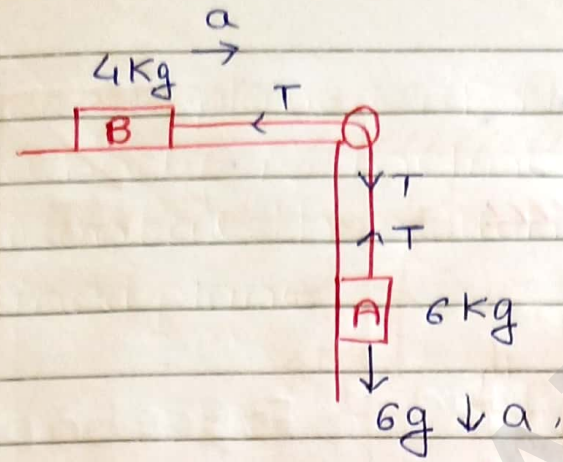 a
4Kg
T
B
T
T
A 6Kg
6g a